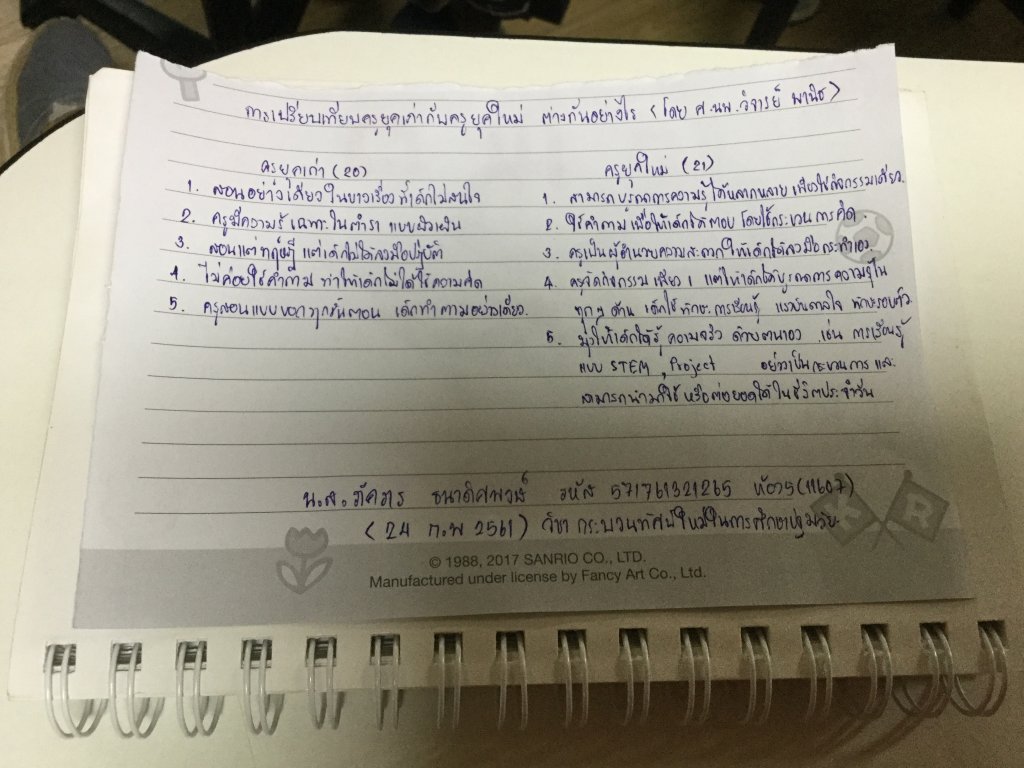 การเปรียบเทียบครูยุคเก่ากับครูยุคใหม่ ต่างกันอย่างไร (โดย ศ.นพ.วิจารย์ พานิช)
ครูยุคเก่า (20)
1. สอนอย่างเดียวในบางเรื่อง ที่เด็กไม่สนใจ
2. ครูมีความรู้ เฉพาะในตำรา แบบผิวเผิน
3. สอนแต่ทฤษฎี แต่เด็กไม่ได้ลงมือปฏิบัติ
4. ไม่ค่อยใช้คำถาม ทำให้เด็กไม่ได้ใช้ความคิด
5. ครูสอนแบบบอกทุกขั้นตอน เด็กทำตามอย่างเดียว.
ครูยุคใหม่ (21)
1. สามารถบูรณาการความรู้ได้หลากหลาย เพียงใช้กิจกรรมเดียว.
2. ใช้คำถามเพื่อให้เด็กได้ตอบ โดยใช้กระบวนการคิด.
3. ครูเป็นผู้อำนวยความสะดวกให้เด็กได้ลงมือกระทำเอง.
4. ครูจัดกิจกรรมเพียง 1 แต่ให้เด็กได้บูรณาการความรู้ใน
ทุกๆ ด้าน เด็กใช้ทักษะการเรียนรู้ แรงบันดาลใจ ทักษะรอบตัว.
5. มุ่งให้เด็กได้รู้ ความจริง ด้วยตนเอง เช่น การเรียนรู้
แบบ STEM , Project อย่างเป็นกระบวนการ และ
สามารถนำมาใช้ หรือต่อยอดได้ในชีวิตประจำวัน
น.ส. ภัคภร รหัส 571761321265 ห้อง 5 (11607)
(24 ก.พ 2561) วิชา กระบวนทัศน์ใหม่ในการศึกษาปฐมวัย.
© 1988, 2017 SANRIO CO., LTD.
Manufactured under license by Fancy Art Co., Ltd.